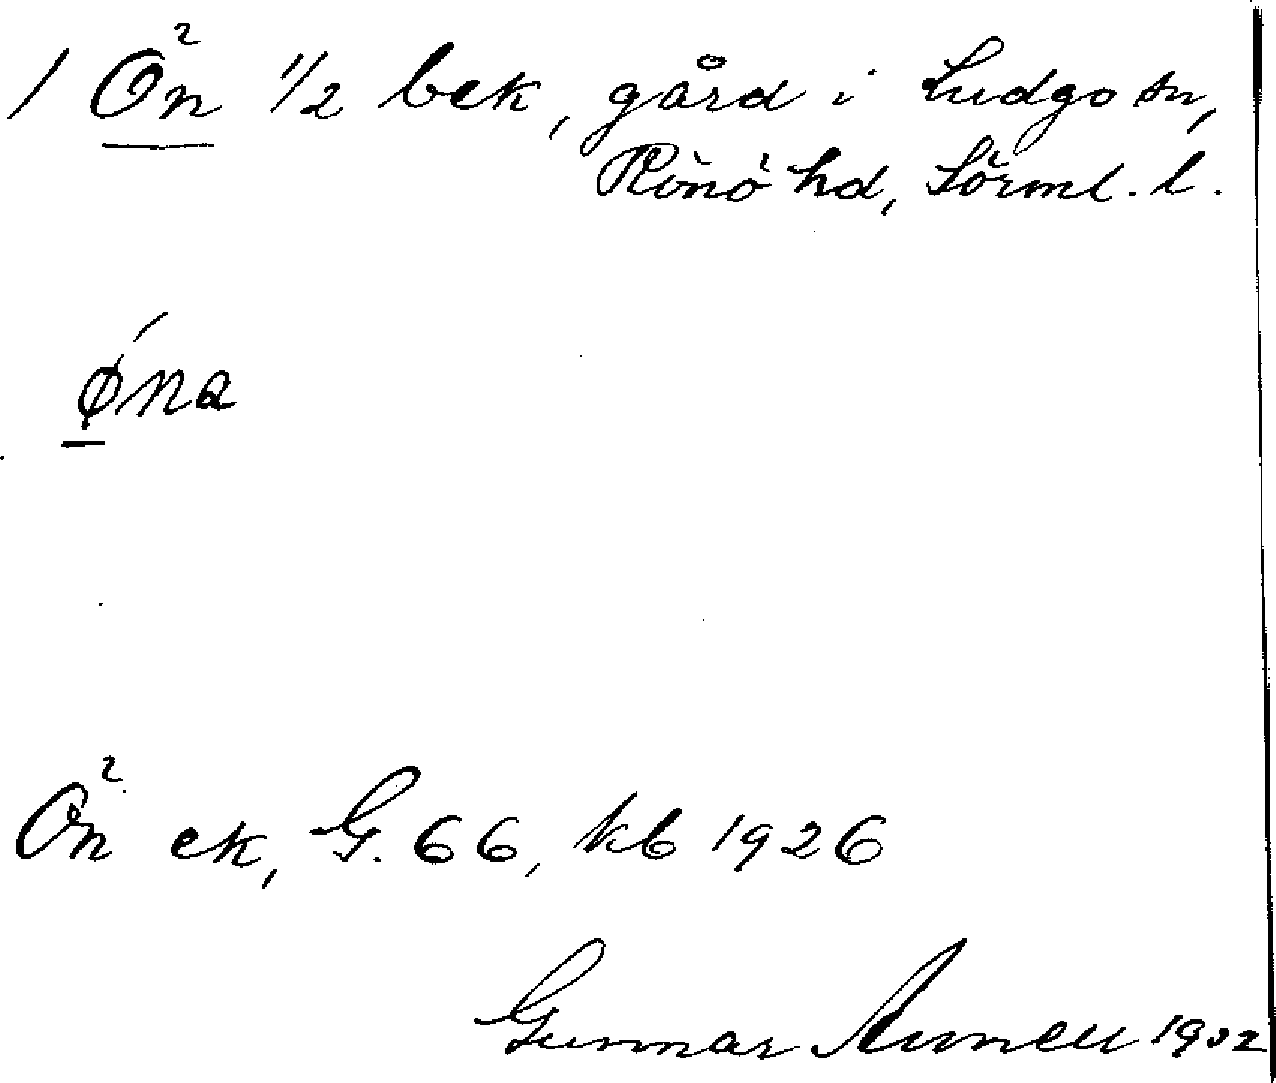 1 Ön 1/2 bek, gård i Ludgo sn,
Rönö hd, Sörml. l.
öna
Ön ek, G. 66, kb 1926
Gunnar 1932